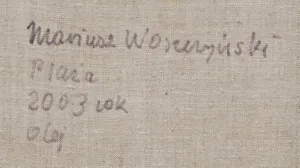 Mariusz Woszczyński
Plaża
2003 rok
Olej